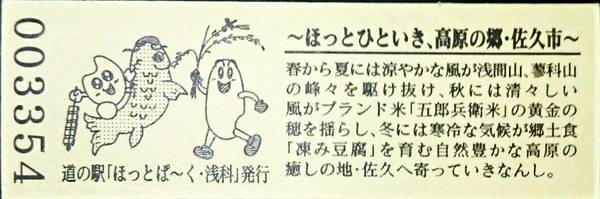 003354
道の駅「ほっとぱ〜く・浅科」発行
〜ほっとひといき、高原の郷・佐久市〜
春から夏には涼やかな風が浅間山、蓼科山
の峰々を駆け抜け、秋には清々しい
風がブランド米「五郎兵衛米」の黄金の
穂を揺らし、冬には寒冷な気候が郷土食
「凍み豆腐」を育む自然豊かな高原の
癒しの地・佐久へ寄っていきなんし。